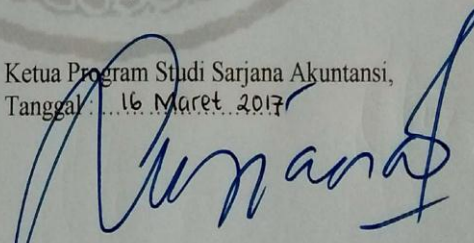 Ketua Program Studi Sarjana Akuntansi,
Tanggal : 16 Maret 2017